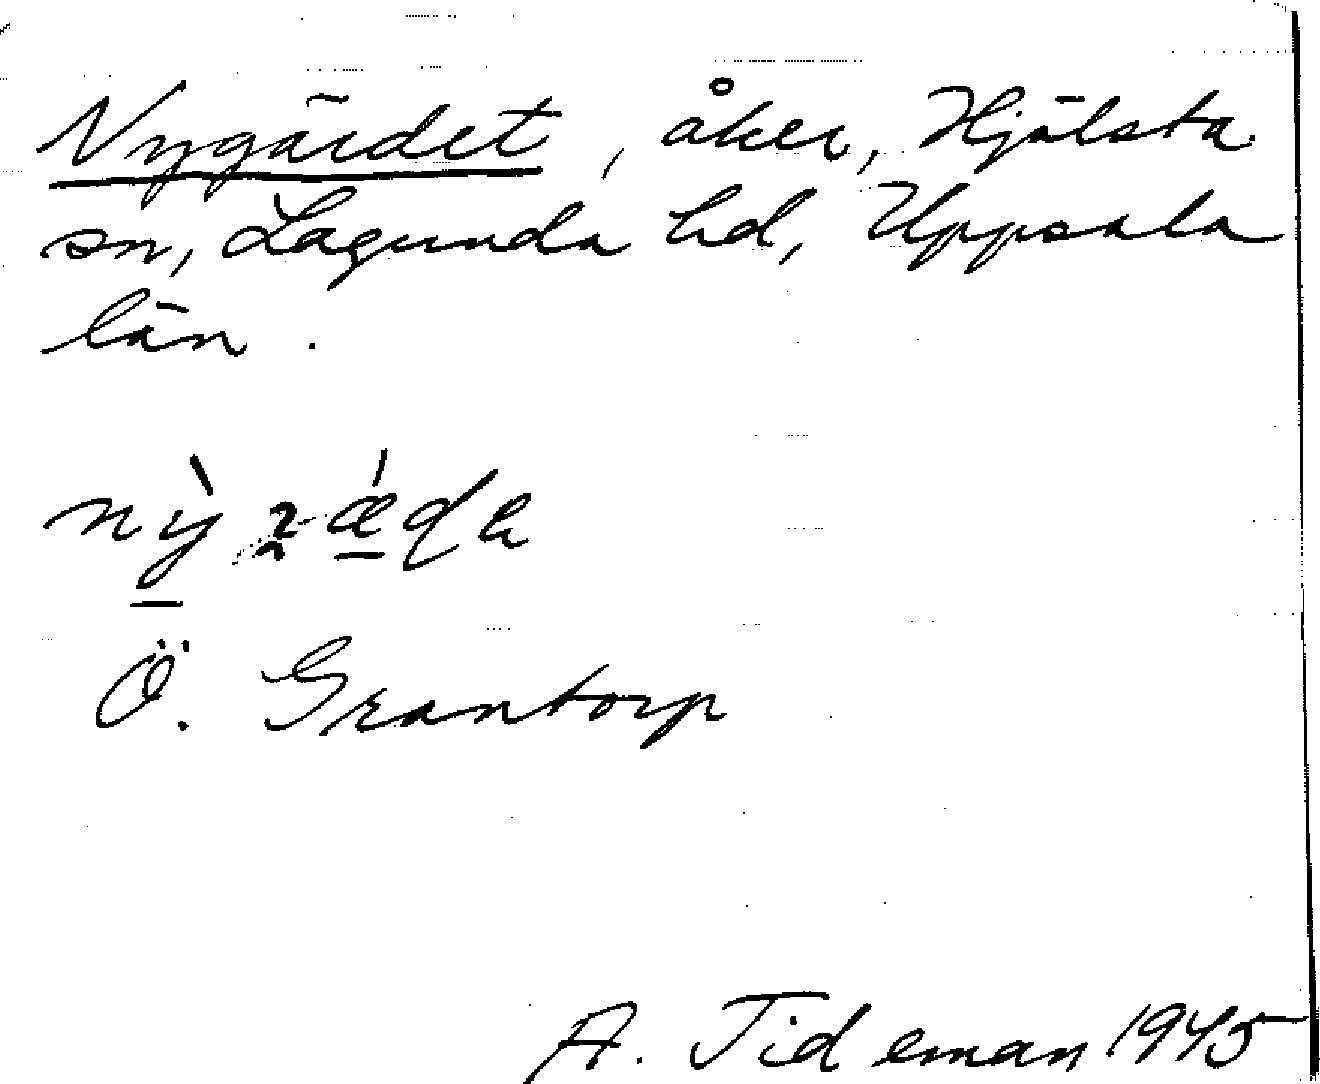 Nygärdet, åker, Hjälsta
sn, Lagunda hd, Uppsala
län.
Ö. Grantorp
A. Tideman 1945